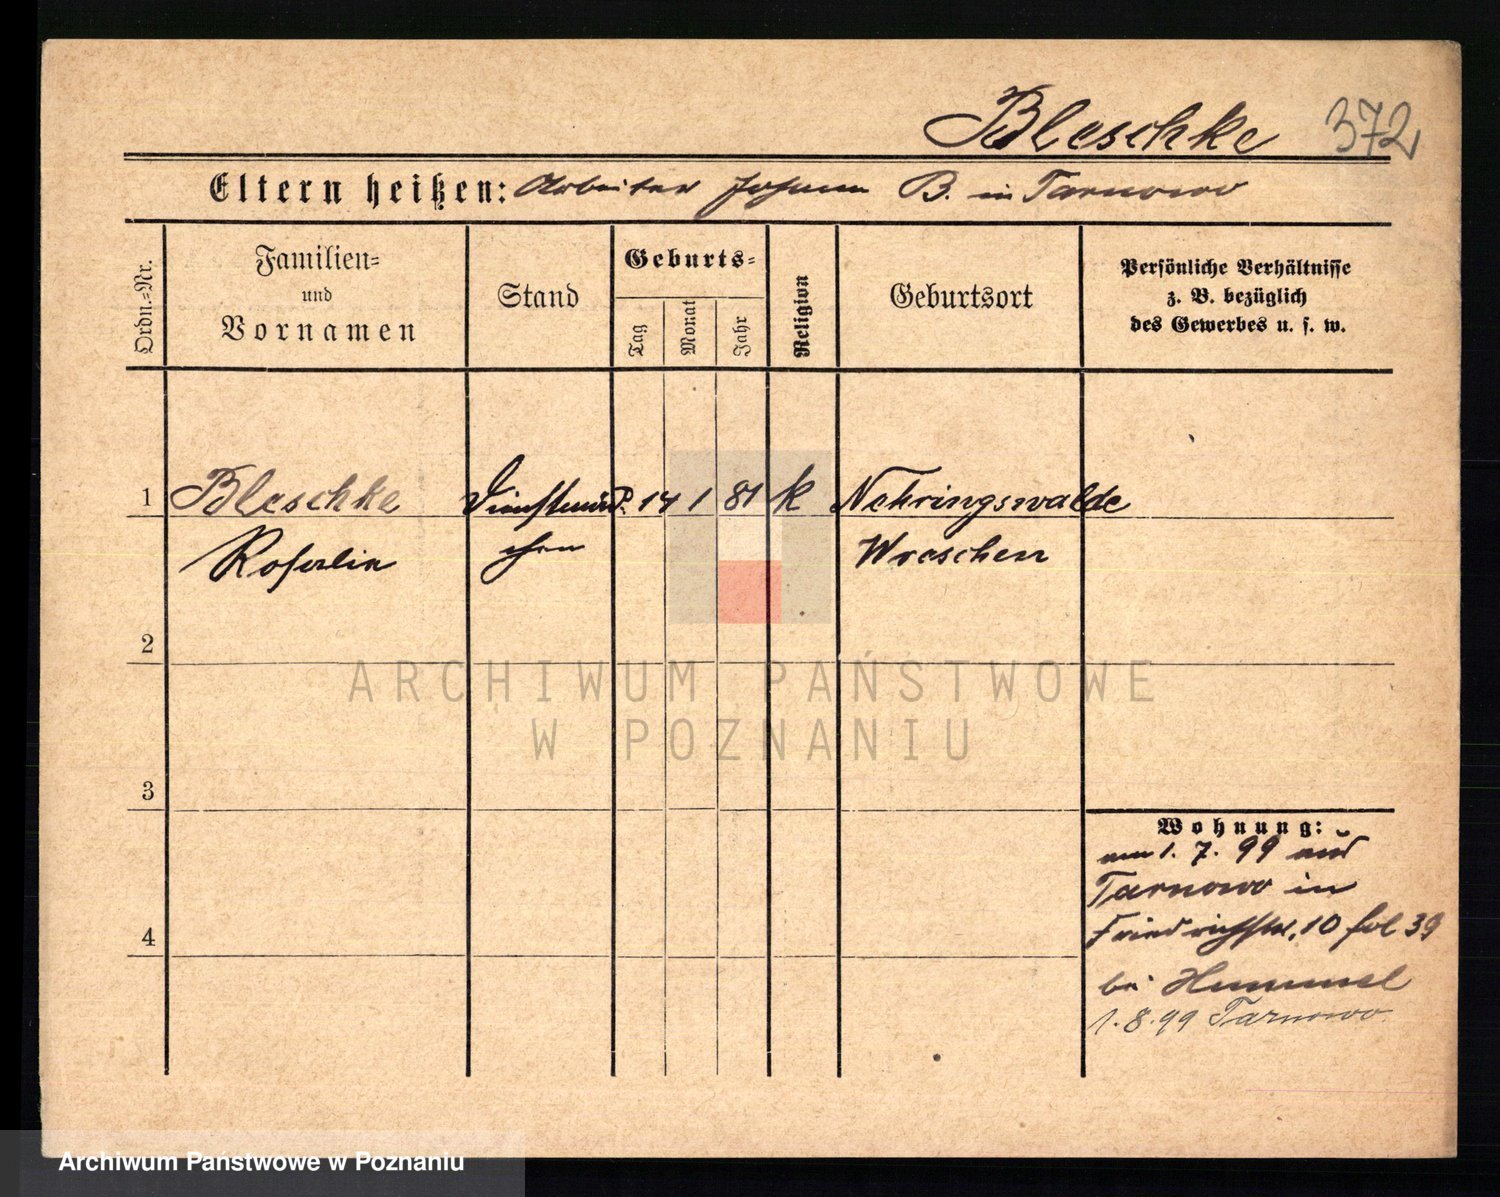 Bleschke 372
Eltern heißen: Arbeiter Johann B. in Tarnowo
Ordn.-Nr.
Familien-
und
Vornamen
Stand
Geburts-
Tag
Monat
Jahr
Religion
Geburtsort
Persönliche Verhältnisse
z. B. bezüglich
des Gewerbes u. s. w.
1 Bleschke Dienstmäd 14 1 81 k Nehringswalde
Rosalie chen Wreschen
2
ARCHIWUM PAŃSTWOWE
W POZNANIU
3
Wohnung:
am 1. 7. 99 aus
Tarnowo in
4
Friedrichstr. 10 fol 39
bei Hummel
1. 8. 99 Tarnowo
Archiwum Państwowe w Poznaniu